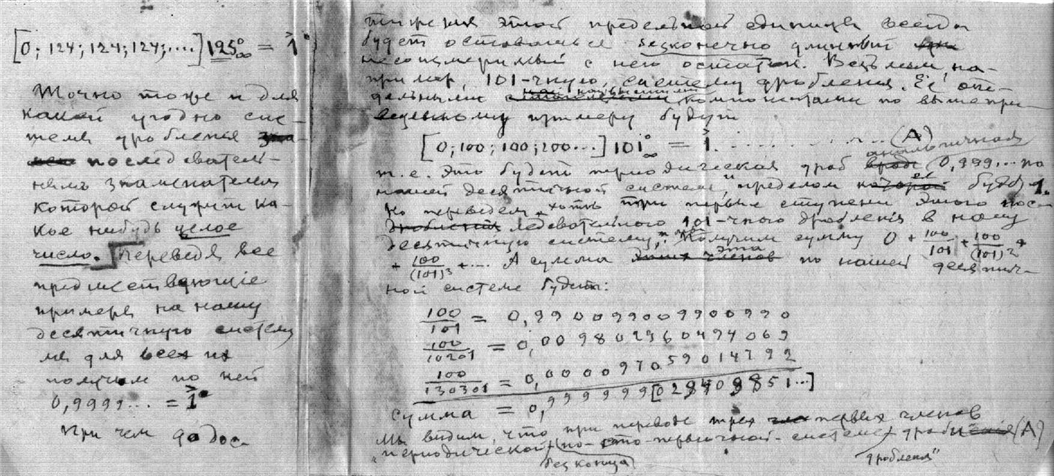 [0; 124; 124; 124;...] 125°∞ = 1
Точно тоже и для
какой угодно сис-
темы дробления
последователь-
ным знаменателем
которой служит ка-
кое нибудь целое
число. Переведя все
предшествующие
примеры на нашу
десятичную систему
мы для всех их
получим по ней
0,9999... = 1
При чем до дос-
тижения этой предельной единицы всегда
будет оставаться безконечно длинный
несоизмеримый с нею остаток. Возьмем на-
пример, 101-чную, систему дробления. Её
компонентами по выше при-
веденному примеру будут
[0; 100; 100; 200...] 101°∞ = 1. . . . . . . . . (А)
т.е. это будет периодическая дробь аналогичная 0,999... по
нашей десятичной системе, и пределом ея будет 1.
Но переведем хоть три первые ступени этого пос-
ледовательного 101-чного дробления в нашу
десятичную систему. Получим сумму 0 + 100/101 + 100/(101)² +
+ 100/(101)³ + .... А сумма эта по нашей десятич-
ной системе будет:
100/101 = 0,990099009900990
100/10201 = 0,00980296049406 9
100/130301 = 0,0000970590147 92
Сумма = 0,999999[029409851...]
Мы видим, что при переводе трех первых членов
периодической по сто-первичной системе дроби (А)
без конца
"дробления"